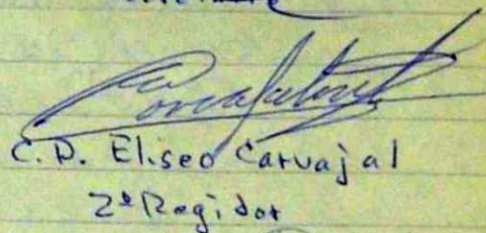 C.D. Eliseo Carvajal
2º Regidor